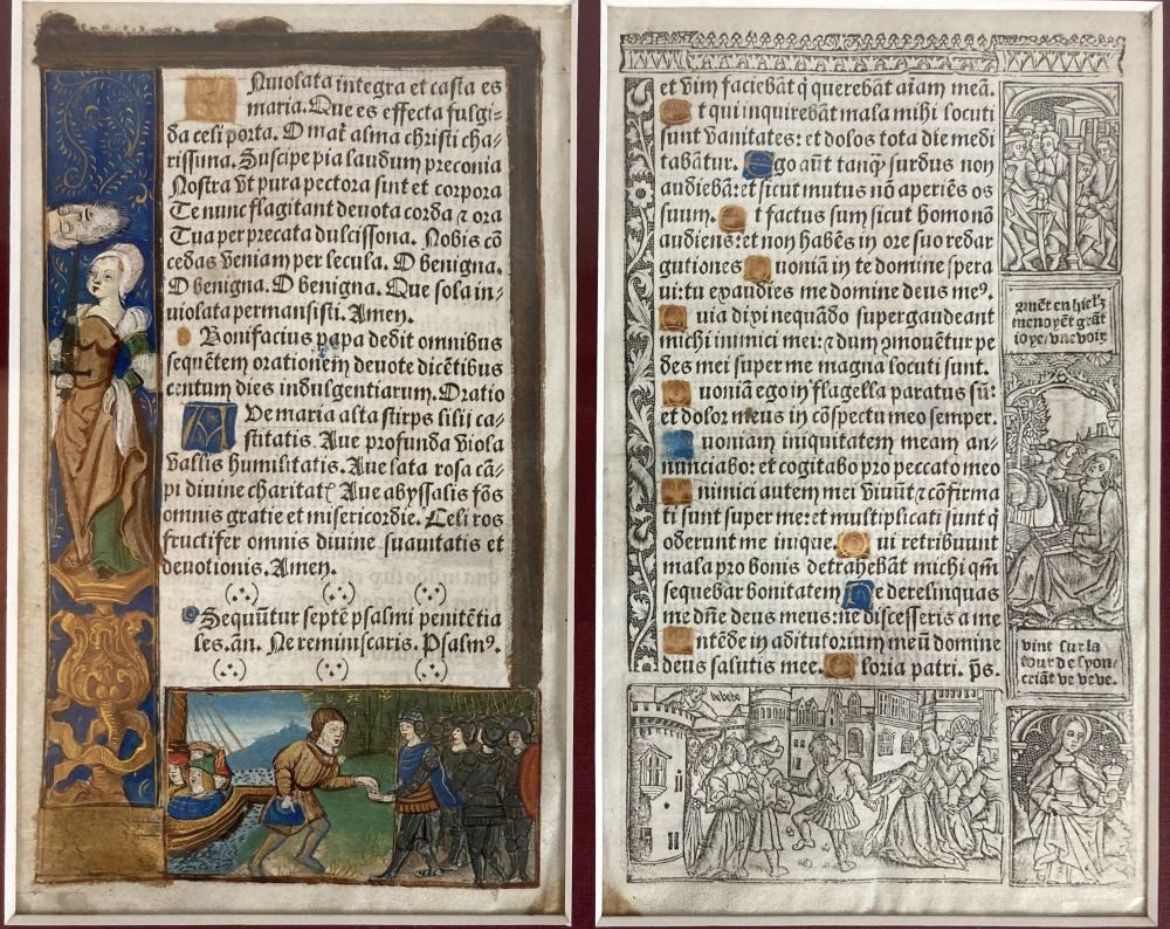 Nuiolata integra et casta es
maria. Que es effecta fulgi⸗
da celi porta. O mat̃ alma christi cha⸗
rissima. Suscipe pia laudum preconia
Nostra vt pura pectora sint et corpora
Te nunc flagitant deuota corda ⁊ ora
Tua per precata dulcissona. Nobis cõ
cedas veniam per secula. O benigna.
O benigna. O benigna. Que sola in⸗
uiolata permansisti. Amen.
Bonifacius papa dedit omnibus
sequẽtem orationem deuote dicẽtibus
centum dies indulgentiarum. Oratio
AVe maria alta stirps lilij ca⸗
stitatis. Aue profunda viola
vallis humilitatis. Aue lata rosa cã⸗
pi diuine charitatꝭ Aue abyssalis fõs
omnis gratie et misericordie. Celi ros
fructifer omnis diuine suauitatis et
deuotionis. Amen.
Sequũtur septẽ psalmi penitẽtia
les. añ. Ne reminiscaris. Psalmꝰ.
et vim faciebãt q̇ querebãt aĩam meã.
t qui inquirebãt mala mihi locuti
sunt vanitates: et dolos tota die medi
tabãtur. Ego aũt tanq̃ surdus non
audiebã: et sicut mutus nõ aperiẽs os
suum. t factus sum sicut homo nõ
audiens: et non habẽs in ore suo redar
gutiones uoniã in te domine spera
ui: tu exaudies me domine deus meꝰ.
uia dixi nequãdo supergaudeant
michi inimici mei: ⁊ dum ꝯmouẽtur pe
des mei super me magna locuti sunt.
uoniã ego in flagella paratus sũ:
et dolor meus in cõspectu meo semper.
uoniam iniquitatem meam an⸗
nunciabo: et cogitabo pro peccato meo
nimici autem mei viuũt ⁊ cõfirma
ti sunt super me: et multiplicati sunt q̇
oderunt me inique. ui retribuunt
mala pro bonis detrahebãt michi qm̃
sequebar bonitatem Ne derelinquas
me dñe deus meus: ne discesseris a me
ntẽde in adiutorium meũ domine
deus salutis mee. loria patri. p̃s.
menoyẽt grãt
ioye/ vne voix
vint sur la
tour de syon/
criãt ve ve ve.
ve ve ve